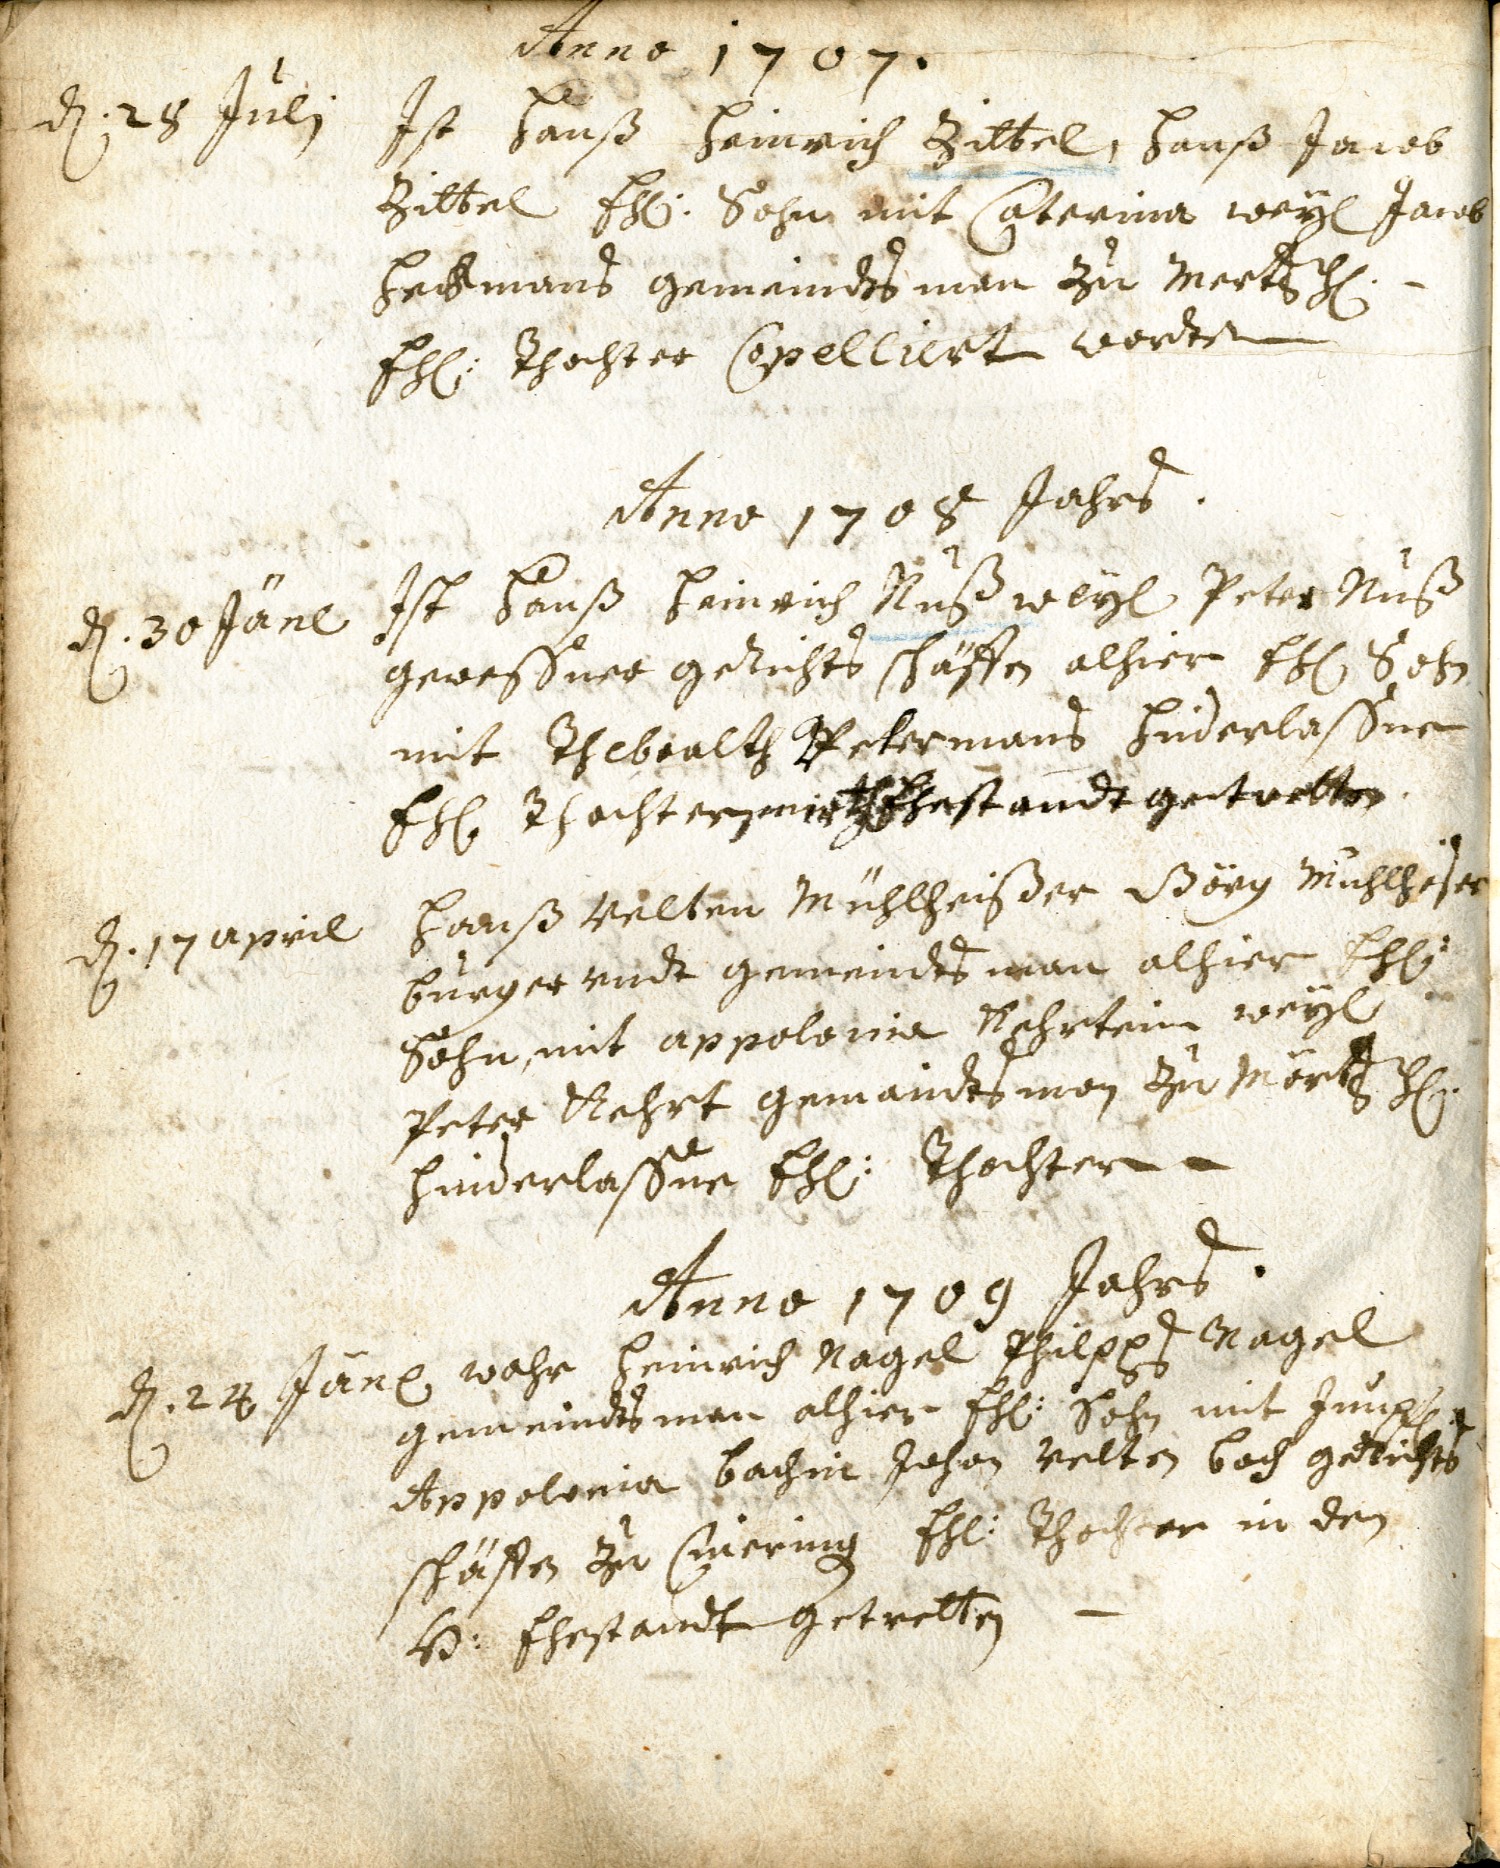 Anno 1707.
d. 28 Julj Ist Hanß Heinrich Zittel, Hanß Jacob
Zittel Ehl: Sohn mit Caterina weyl Jacob
Heckmans gemeindts man zu Mertzh. –
Ehl: Thochter Copelliert worden
Anno 1708 Jahrs.
d. 30 Jäne Ist Hanß Heinrich Nuß weyl Peter Nuß
geweßner gerichts schäffen alhier Ehl Sohn
mit Petermans hinderlaßne
Ehl Thochter Ehestandt getretten.
d. 17 april Hanß Velten Mühlheißer Görg Mühlheiser
burger undt gemeindts man alhier Ehl:
Sohn, mit appolonia Rehrtein weyl
Peter Rehrt gemeindts man zu Mörtzh.
hinderlaßne Ehl: Thochter
Anno 1709 Jahrs.
d. 24 Jäne wahr Heinrich Nagel Philpps Nagel
gemeindts man alhier Ehl: Sohn mit Jungf.
Appolonia bachin Johan Velten bach gerichts
schäffen zu Ehl: Thochter in den
H: Ehestandt getretten –